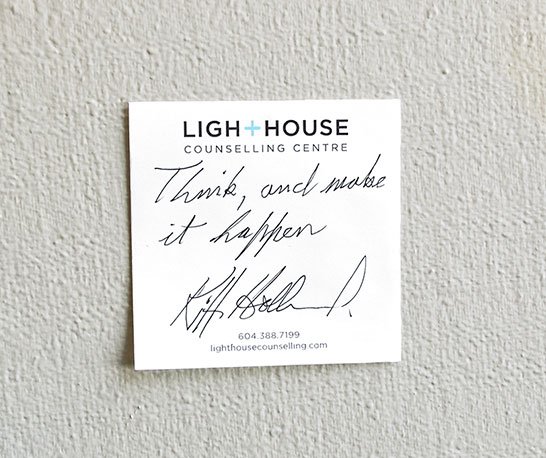 LIGHTHOUSE
COUNSELLING CENTRE
Think, and make
it happen
604.388.7199
lighthousecounselling.com